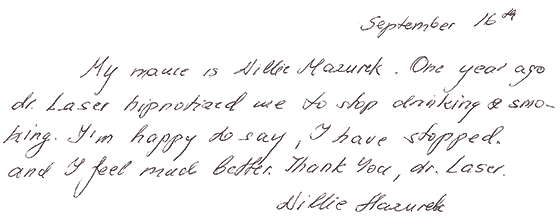 September 16th
My name is Willie Mazurek. One year ago
dr. Laser hipnotized me to stop drinking & smo-
king. I'm happy to say, I have stopped.
and I feel much better. Thank You, dr. Laser.
Willie Mazurek